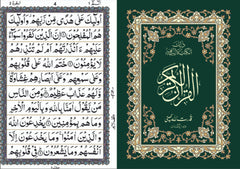 القرآن الكريم
4
اُولٰٓئِكَ عَلٰى هُدًى مِّنْ رَّبِّهِمْ وَاُولٰٓئِكَ
هُمُ الْمُفْلِحُوْنَ اِنَّ الَّذِيْنَ كَفَرُوْا سَوَآءٌ
عَلَيْهِمْ ءَاَنْذَرْتَهُمْ اَمْ لَمْ تُنْذِرْهُمْ
لَا يُؤْمِنُوْنَ خَتَمَ اللّٰهُ عَلٰى قُلُوْبِهِمْ
وَعَلٰى سَمْعِهِمْ وَعَلٰٓى اَبْصَارِهِمْ غِشَاوَةٌ
وَّلَهُمْ عَذَابٌ عَظِيْمٌ وَمِنَ النَّاسِ
مَنْ يَّقُوْلُ اٰمَنَّا بِاللّٰهِ وَبِالْيَوْمِ الْاٰخِرِ
وَمَا هُمْ بِمُؤْمِنِيْنَ يُخٰدِعُوْنَ اللّٰهَ
وَالَّذِيْنَ اٰمَنُوْا وَمَا يَخْدَعُوْنَ اِلَّآ
اَنْفُسَهُمْ وَمَا يَشْعُرُوْنَ فِيْ قُلُوْبِهِمْ